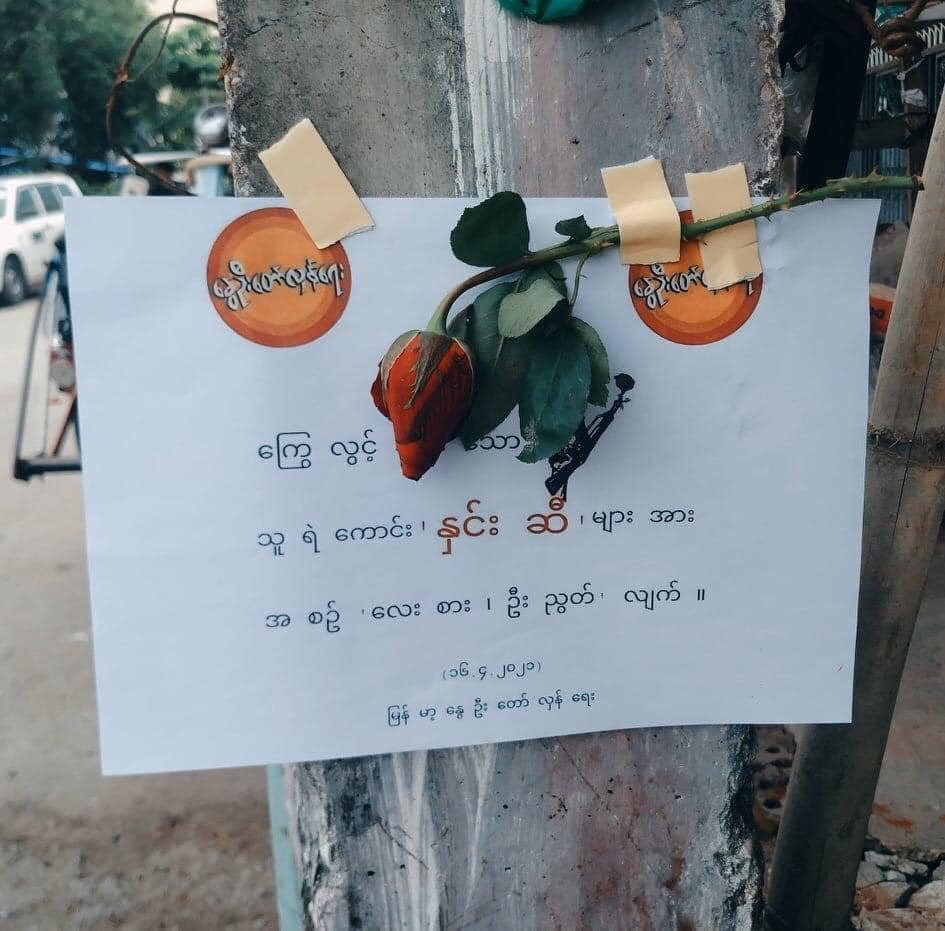 နွေဦးတော်လှန်ရေး
ကြွေ လွင့် သော
သူ ရဲ ကောင်း ' နှင်း ဆီ ' များ အား
အ စဉ် ' လေး စား ၊ ဦး ညွတ် ' လျက် ။
(၁၆.၄.၂၀၂၁)
မြန် မာ့ နွေ ဦး တော် လှန် ရေး